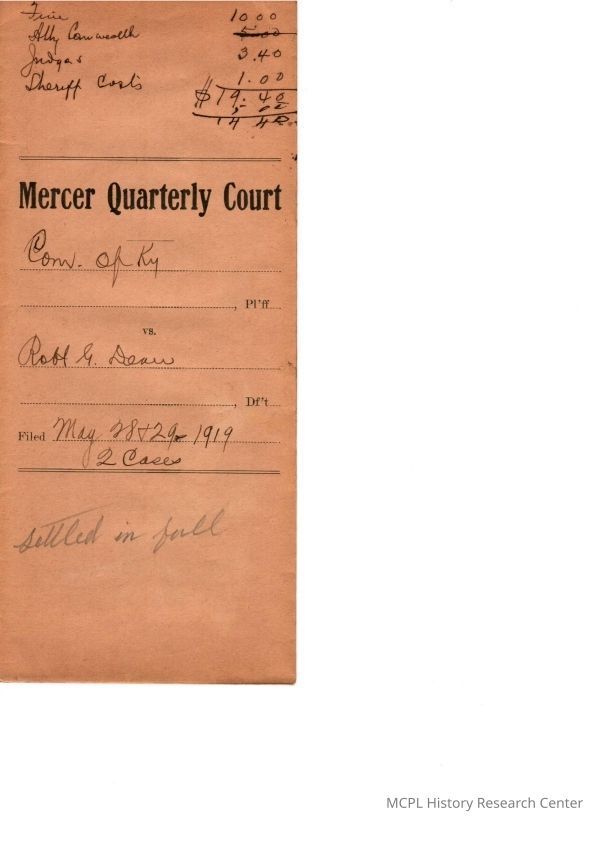 Fine 10.00
Atty Comwealth 5.00
Judges 3.40
Sheriff Costs 1.00
$19.40
5.00
14 40
Mercer Quarterly Court
Com. of Ky
, Pl'ff
vs.
Robt G. Dean
, Df't
Filed May 28 & 29 1919
2 Cases
settled in full
MCPL History Research Center